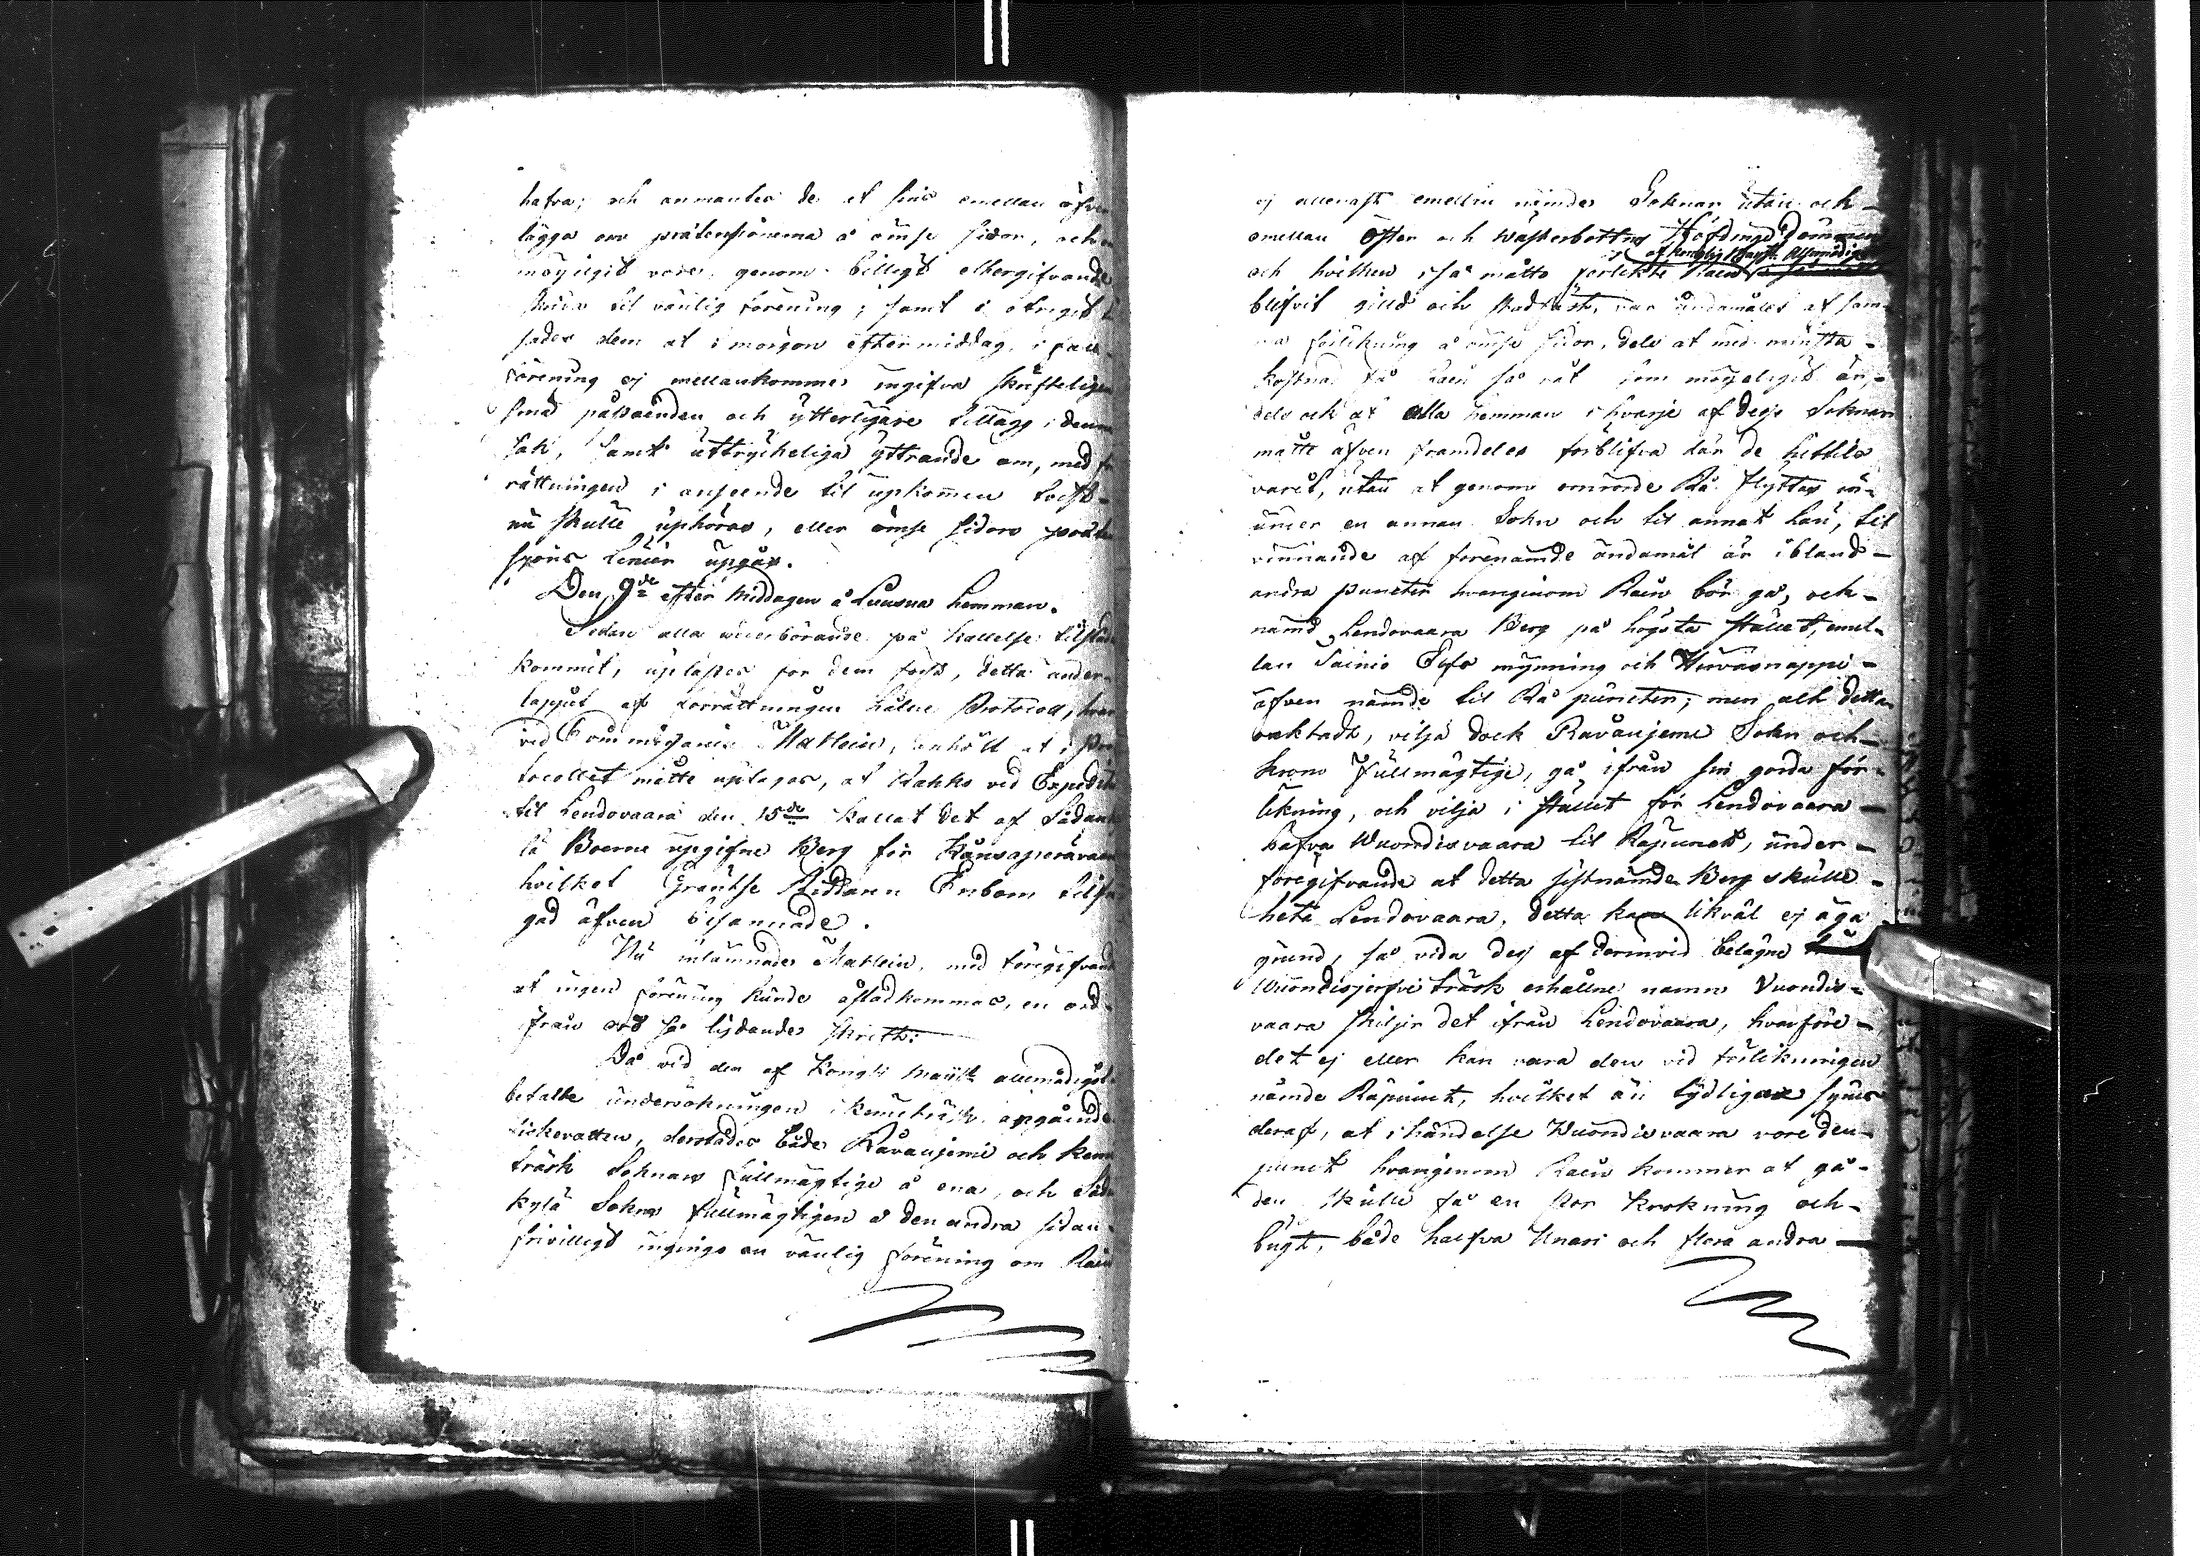 hafva; och anmantes de at sins emellan öfver
lägga om prætensionerna å ömse sidor, och
möyeligit vore, genom billigt eftergifvande
til vänlig förening; samt i öfrigit
sades dem at i morgon eftermiddag, i fall
förening ej mellankommer ingifva skrifteligen
sina påståenden och ytterligare tillägg i denna
sak, samt uttryckeliga yttrande om, med för
rättningen i anseende til upkommen tvist
nu skulle uphöras, eller ömse sidors præten
sions Linier upgås.
Den 9de efter Middagen å Luusua hemman.
Sedan alla vederbörande på kallelse tilstädes
kommit, uplästes for dem först, detta under
loppet af förrättningen hålne Protocoll, hvar
vid Comminister Mathlein, anhölt at i Pro
tocollet måtte uptagas, at Kakko vid Expedition
til Lendovaara den 15de kallat det af Sådanky
lä Boerne upgifne Berg för Kånsaperävaara
hvilket Gräntse Riddaren Enbom tilfrå
gad äfven besannade.
Nu inlämnade Mathlein, med föregifvande
at ingen förening kunde åstadkommas, en ord
ifrån ord så lydande skrift:
Då vid den af Kongl. Maij:tt allernådigst
befalte undersökningen i Kemiträsk angående
fiskevatten, derstädes både Råvanjemi och Kemi
träsk Soknars fullmägtige å ena, och Såda
kylä Sokns fullmägtigen å den andra sidan
frivilligt ingingo en vänlig förening om Råen
ej allenast emellan nämde Soknar utan och
emellan Öster och Wästerbottns Höfdinge Dömmen
af Konglig Maij:tt Allernådigst
och hvilken i så måtto förlikte Råen
blifvit gilld och stadfäst, var ändamålet af sam
ma förlikning å ömse sidor, dels at med minsta
kostnad få Råen så rät som möyeligit är,
dels ock at alla hemman i hvarje af desse Soknar
måtte äfven framdeles förblifva där de hittils
varit, utan at genom omrörde Rå flyttas
under en annan Sokn och til annat Län, til
vinnande af förenämde ändamål är ibland
andra puncter hvarginom Råen bör gå, och
nämd Lendovaara Berg på högsta stället, emel
lan Sainio Eifs mynning och Hirvasnappi
äfven nämde til Rå puncter; men alt detta
oaktadt, vilja dock Råvanjemi Sokn och
Krono Fullmägtige, gå ifrån sin gorda för
likning, och vilja i stället för Lendovaara
hafva Wuondisvaara til Råpunct, under
föregifvande at detta sistnämde Berg skulle
heta Lendovaara, detta kan likväl ej äga
grund, så vida dess af derinvid belägne
Wuondisjerfvi träsk erhållne namn Vuondis
vaara skiljer det ifrån Lendovaara, hvarföre
det ej eller kan vara den vid förlikningen
nämde Råpunct, hvilket än tydligare synes
deraf, at i händelse Wuondisvaara vore den
punct hvarginom Råen kommer at gå
den skulle få en stor krokning och
bugt, både halfva Unari och flera andra